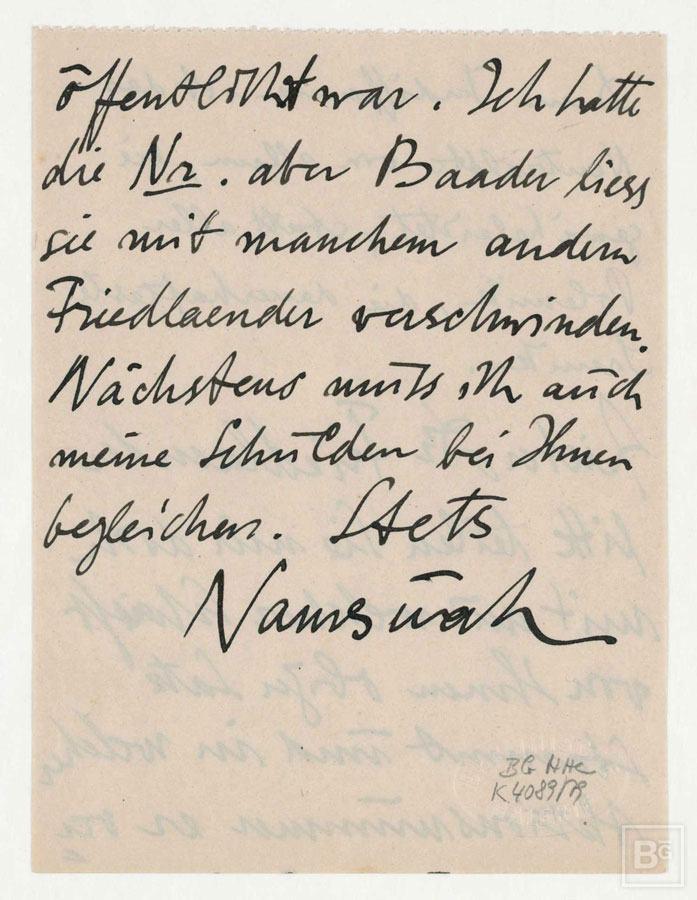 öffentlicht war. Ich hatte
die Nr. aber Baader liess
sie mit manchem andern
Friedlaender verschwinden.
Nächstens muss ich auch
meine Schulden bei Ihnen
begleichen. Stets
BG HHC
K.4089/79
BG